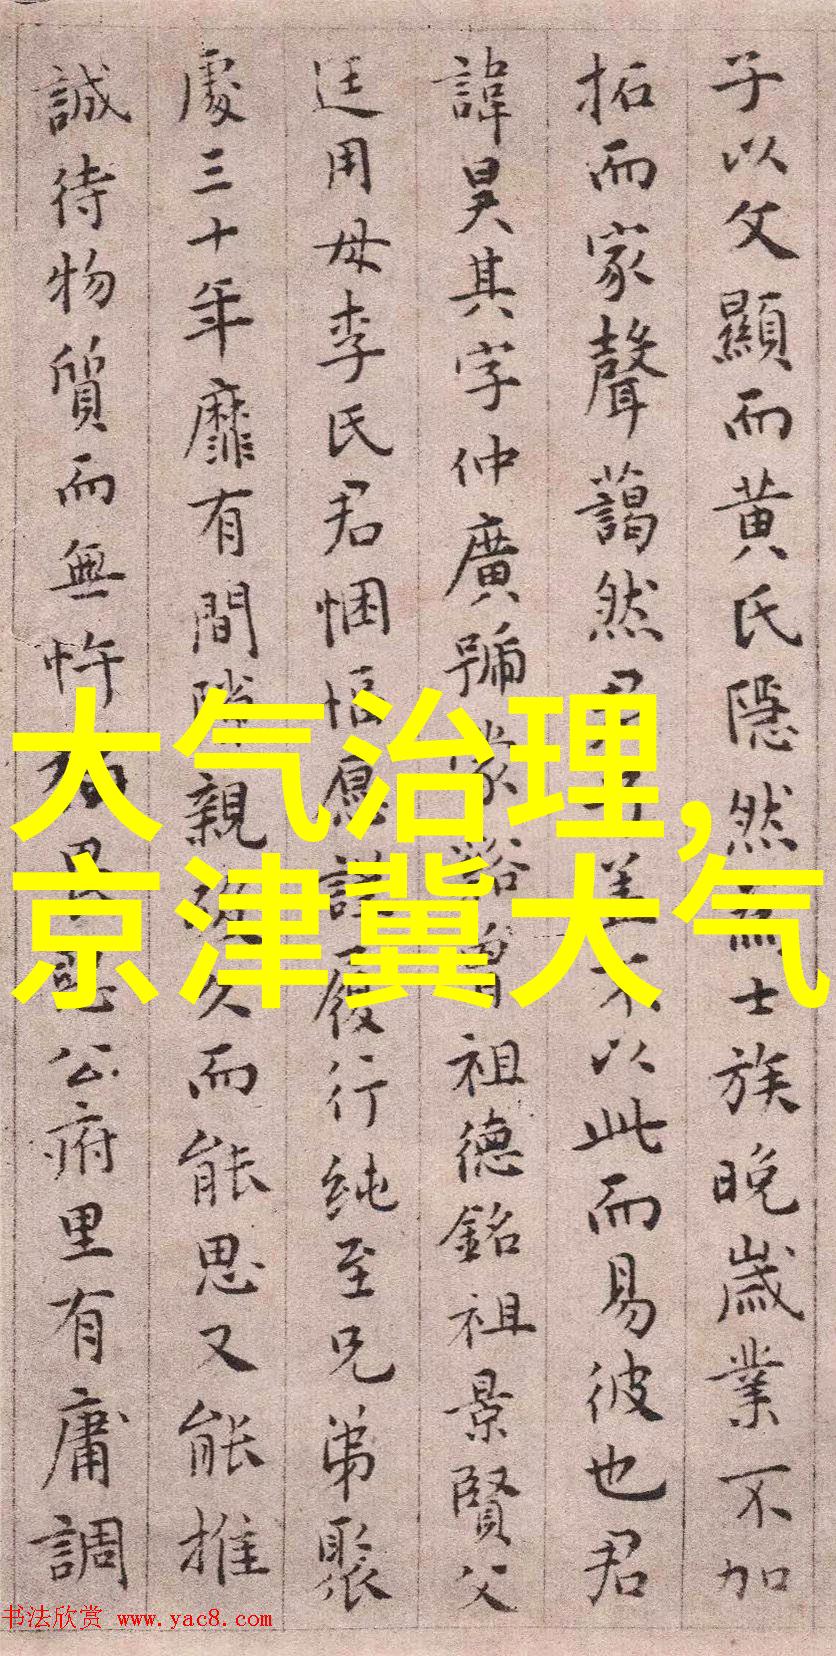 子以父顯而黄氏隠然為士族晚歲業不加
拓而家聲藹然君子善不以此而易彼也君
諱昊其字仲廣號蒙谿曾祖德銘祖景賢父
廷用母李氏君悃愊愿謹履行純至兄弟聚
處三十年靡有間隙親殁久而能思又能推
誠待物質而無忤物畏慰公府里有庸調
大气治理,
京津冀大气
书法欣赏 www.yac8.com